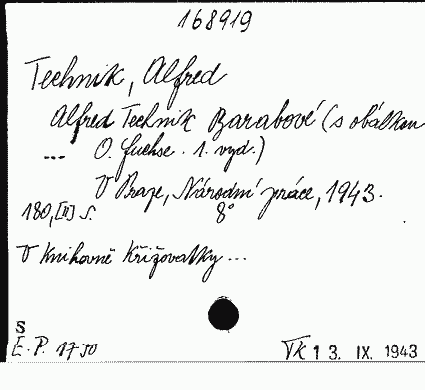 168919
Technik, Alfred
Alfred Technik Barabové (s obálkou
... O. Fuchse. 1. vyd.)
V Praze, Národní práce, 1943.
180, [II] s. 8°
V Knihovně Křižovatky ...
S
E. P. 17·50
TK 13. IX. 1943